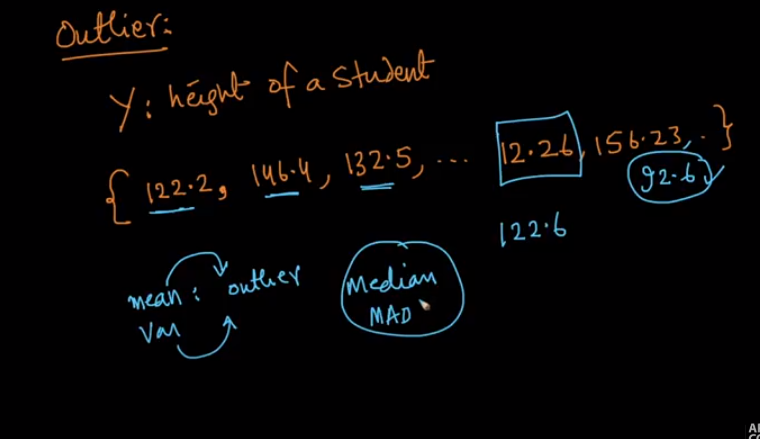 Outlier:
Y: height of a Student
{ 122.2, 146.4, 132.5, ... 12.26, 156.23, . }
92.6
122.6
mean: outlier
Var
Median
MAD